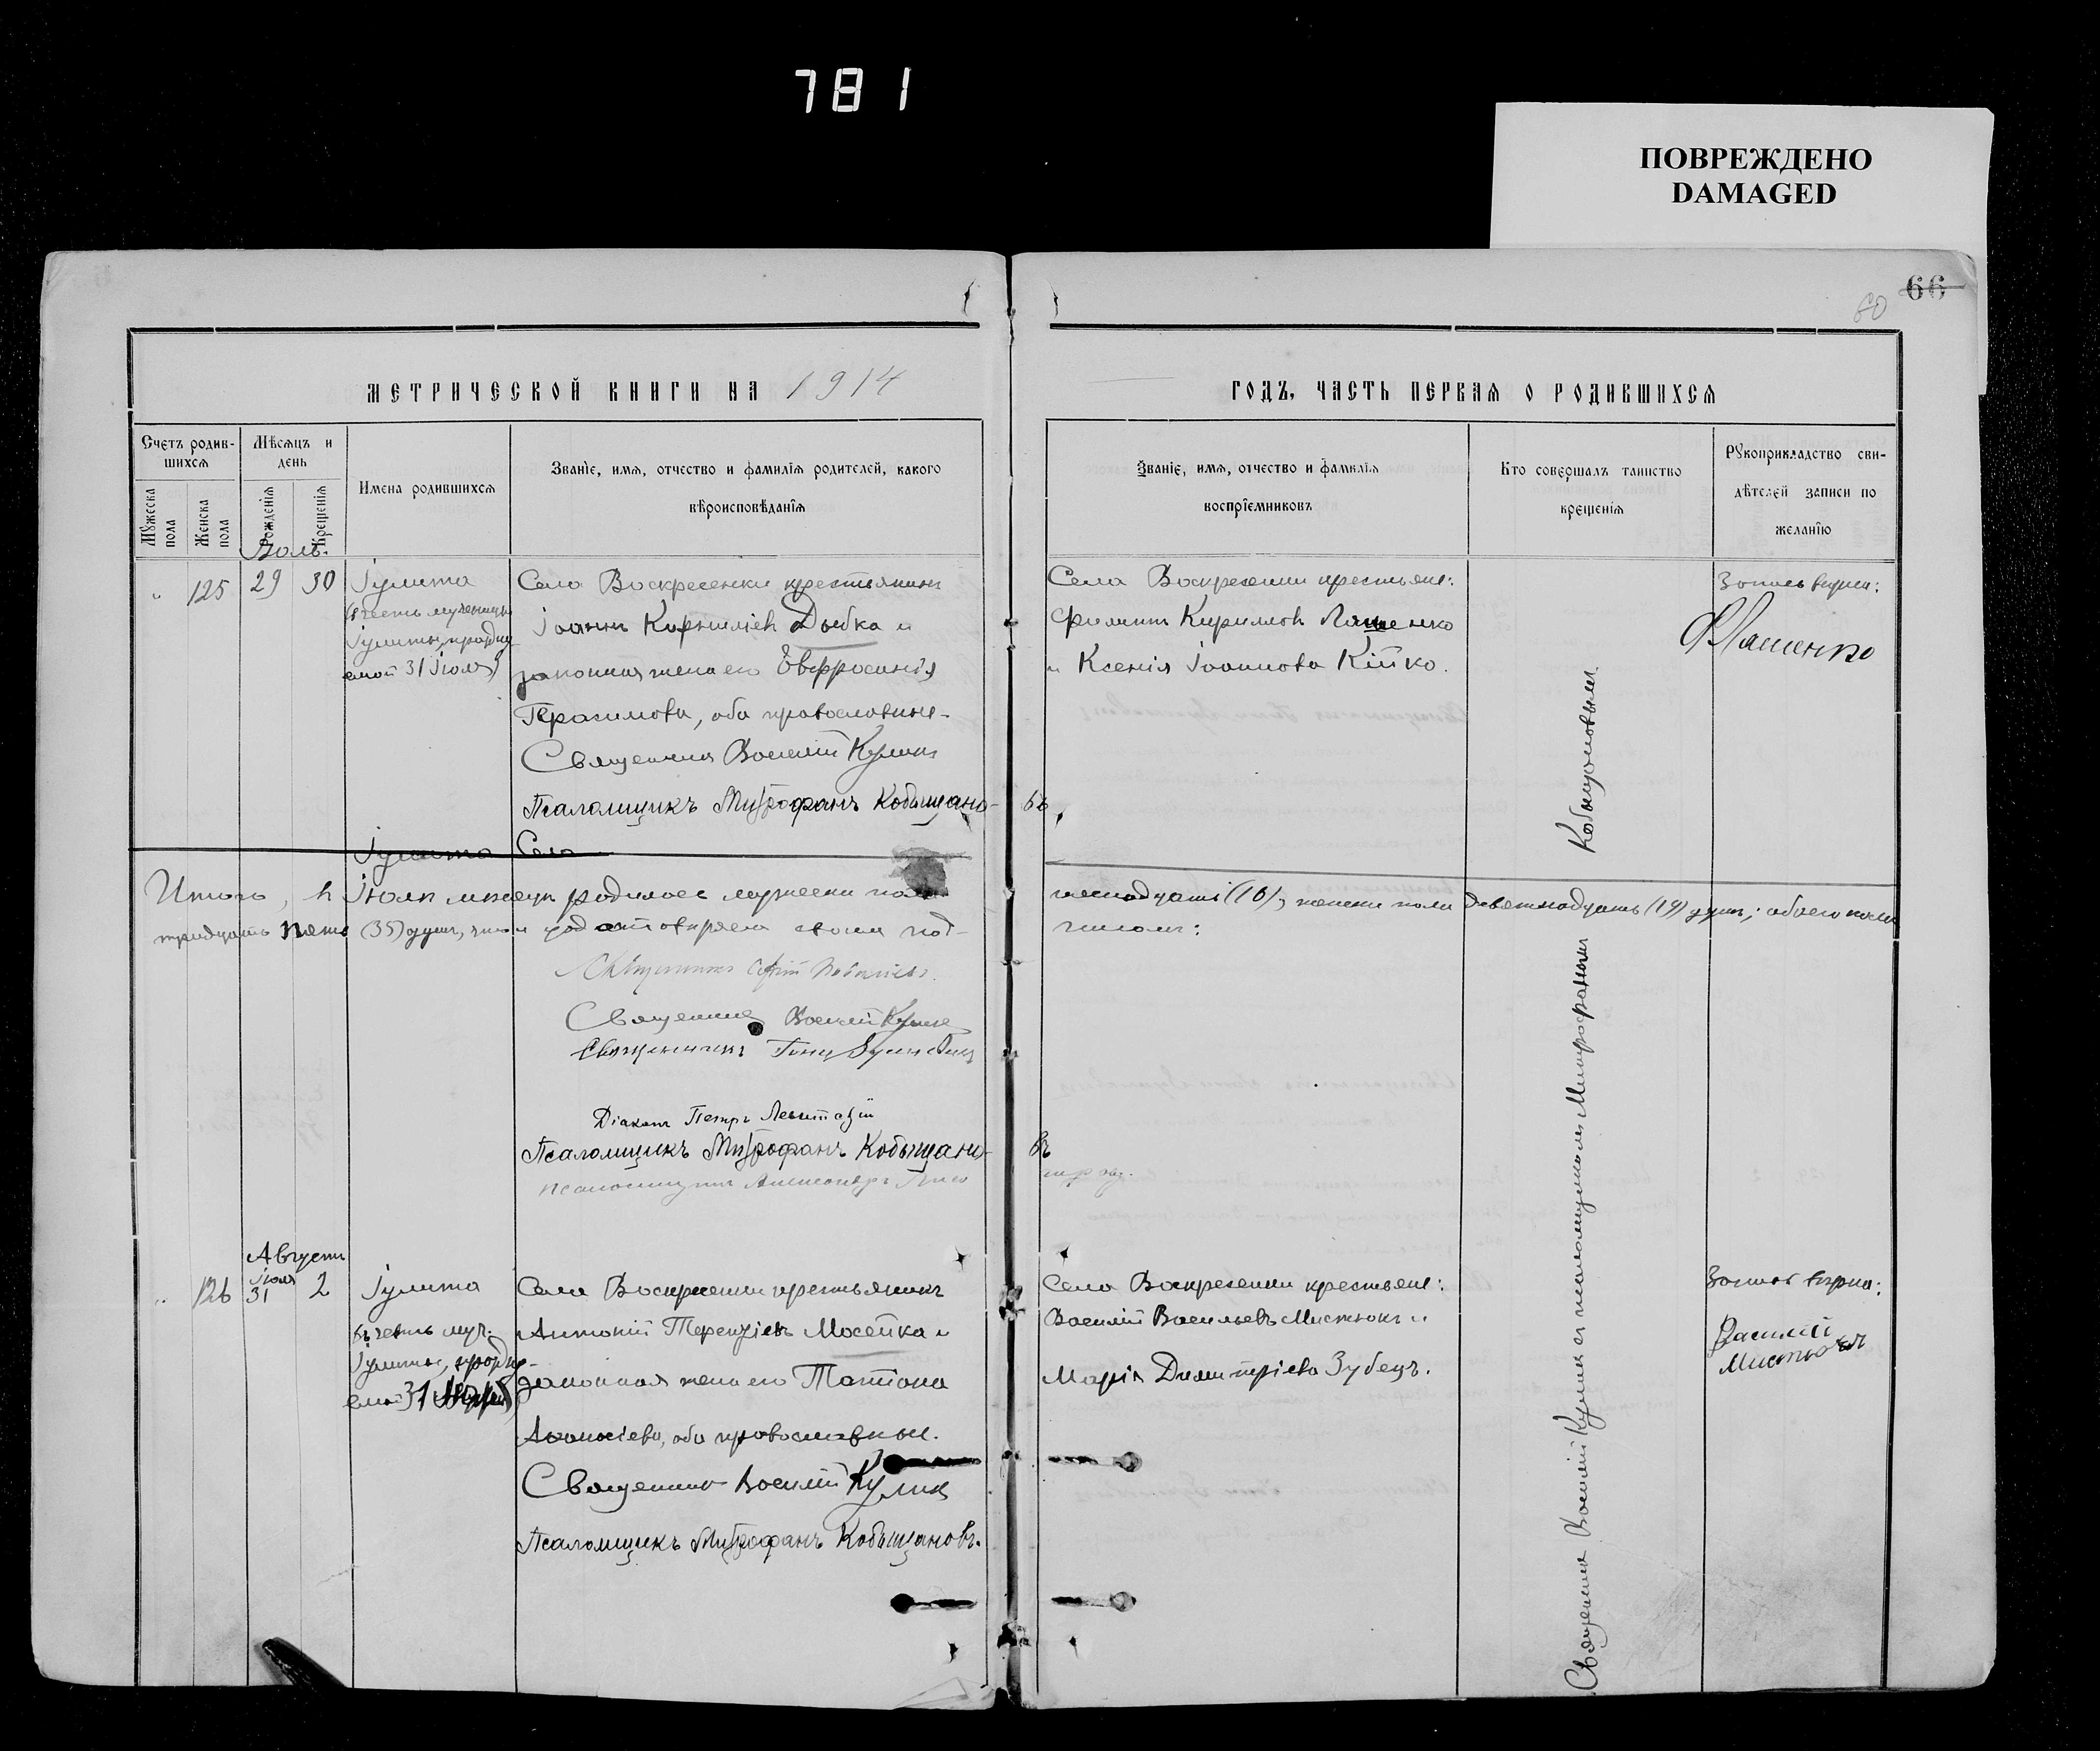 781
ПОВРЕЖДЕНО
DAMAGED
66
60
МЕТРИЧЕСКОЙ КНИГИ НА 1914
ГОДЪ, ЧАСТЬ ПЕРВАЯ О РОДИВШИХСЯ
Счетъ родив-
шихся
Мужеска
пола
Женска
пола
Мѣсяцъ и
день
Рожденія
Крещенія
Имена родившихся
Званіе, имя, отчество и фамилія родителей, какого
вѣроисповѣданія
Званіе, имя, отчество и фамилія
воспріемниковъ
Кто совершалъ таинство
крещенія
Рукоприкладство сви-
дѣтелей записи по
желанію
125 29 30
Іулита
Іулиты, праздну
емой 31 Іюля)
Села Воскресенки крестьянинъ
Іоаннъ Корниліевъ Дыбка и
законная жена его Евфросинія
Герасимова, оба православные.
Священникъ Василій Куликъ
Псаломщикъ Митрофанъ Кобыщано-
въ
Села Воскресенки крестьяне:
Филиппъ Кирилловъ Ляшенко
и Ксенія Іоаннова Кійко.
Запись вѣрна:
Ф Лашенко
Іулита Села
Итого, въ Іюлѣ мѣсяцѣ родилось мужеска пола
шестнадцать (16), женска пола девятнадцать (19) душъ; обоего пола
тридцать пять (35) душъ, что и удостовѣряемъ своимъ под-
писомъ:
Священникъ
Священникъ Василій Куликъ
Священникъ
Діаконъ Петръ Левитскій
Псаломщикъ Митрофанъ Кобыщано-
въ
Псаломщикъ Александръ
Августъ
126 Іюля 31 2
Іулита
въ честь муч.
Іулиты, праздну-
емой 31
Села Воскресенки крестьянинъ
Антоній Терентіевъ Мосейка и
законная жена его Татіана
Аѳанасіева, оба православные.
Священникъ Василій Куликъ
Псаломщикъ Митрофанъ Кобыщановъ.
Села Воскресенки крестьяне:
Василій Васильевъ Мистюкъ и
Марія Димитріева Зубецъ.
Священникъ Василій Куликъ съ псаломщикомъ Митрофаномъ
Кобыщановымъ.
Запись вѣрна:
Василій
Мистюкъ